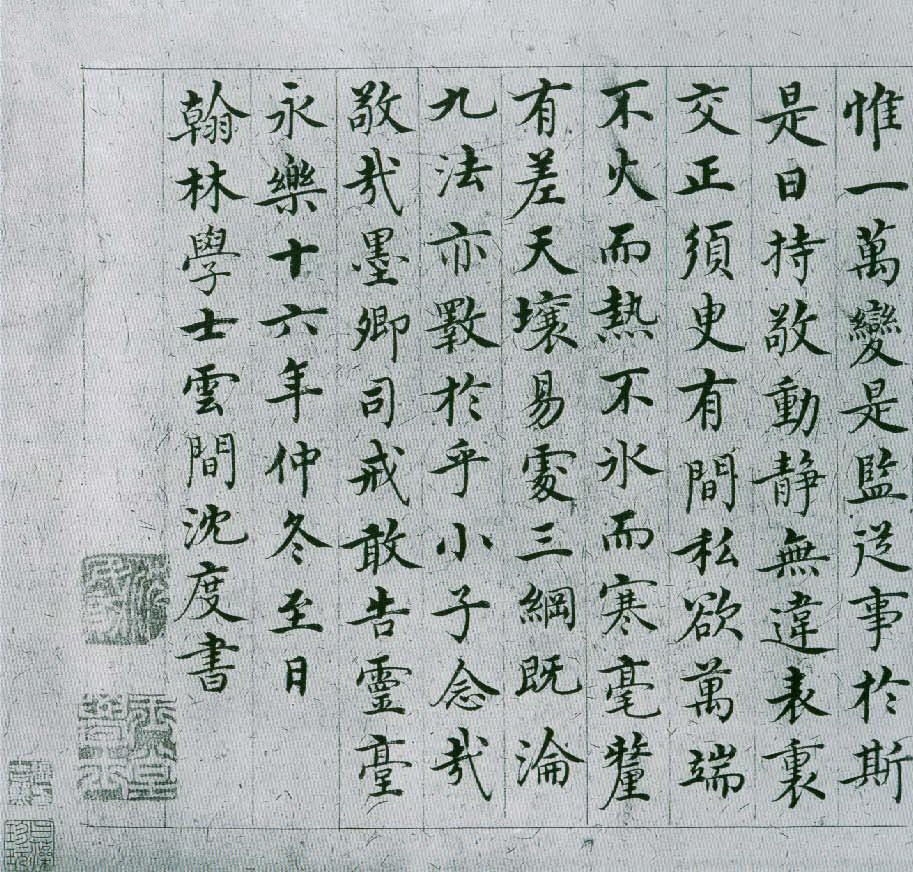 惟一萬變是監從事於斯
是曰持敬動静無違表裏
交正須臾有間私欲萬端
不火而熱不氷而寒毫釐
有差天壤易處三綱既淪
九法亦斁於乎小子念㢤
敬㢤墨卿司戒敢告靈臺
永樂十六年仲冬至日
翰林學士雲間沈度書